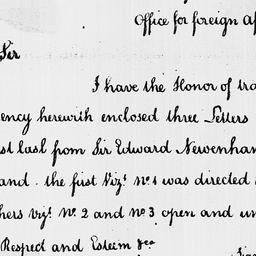 Office for foreign Af
Sir
I have the Honor of tra
ency herewith enclosed three Letters
st last from Sir Edward Newenham
and. the first Vizt. No. 1 was directed
hers vizt. No. 2 and No 3 open and un
Respect and Esteem &ca